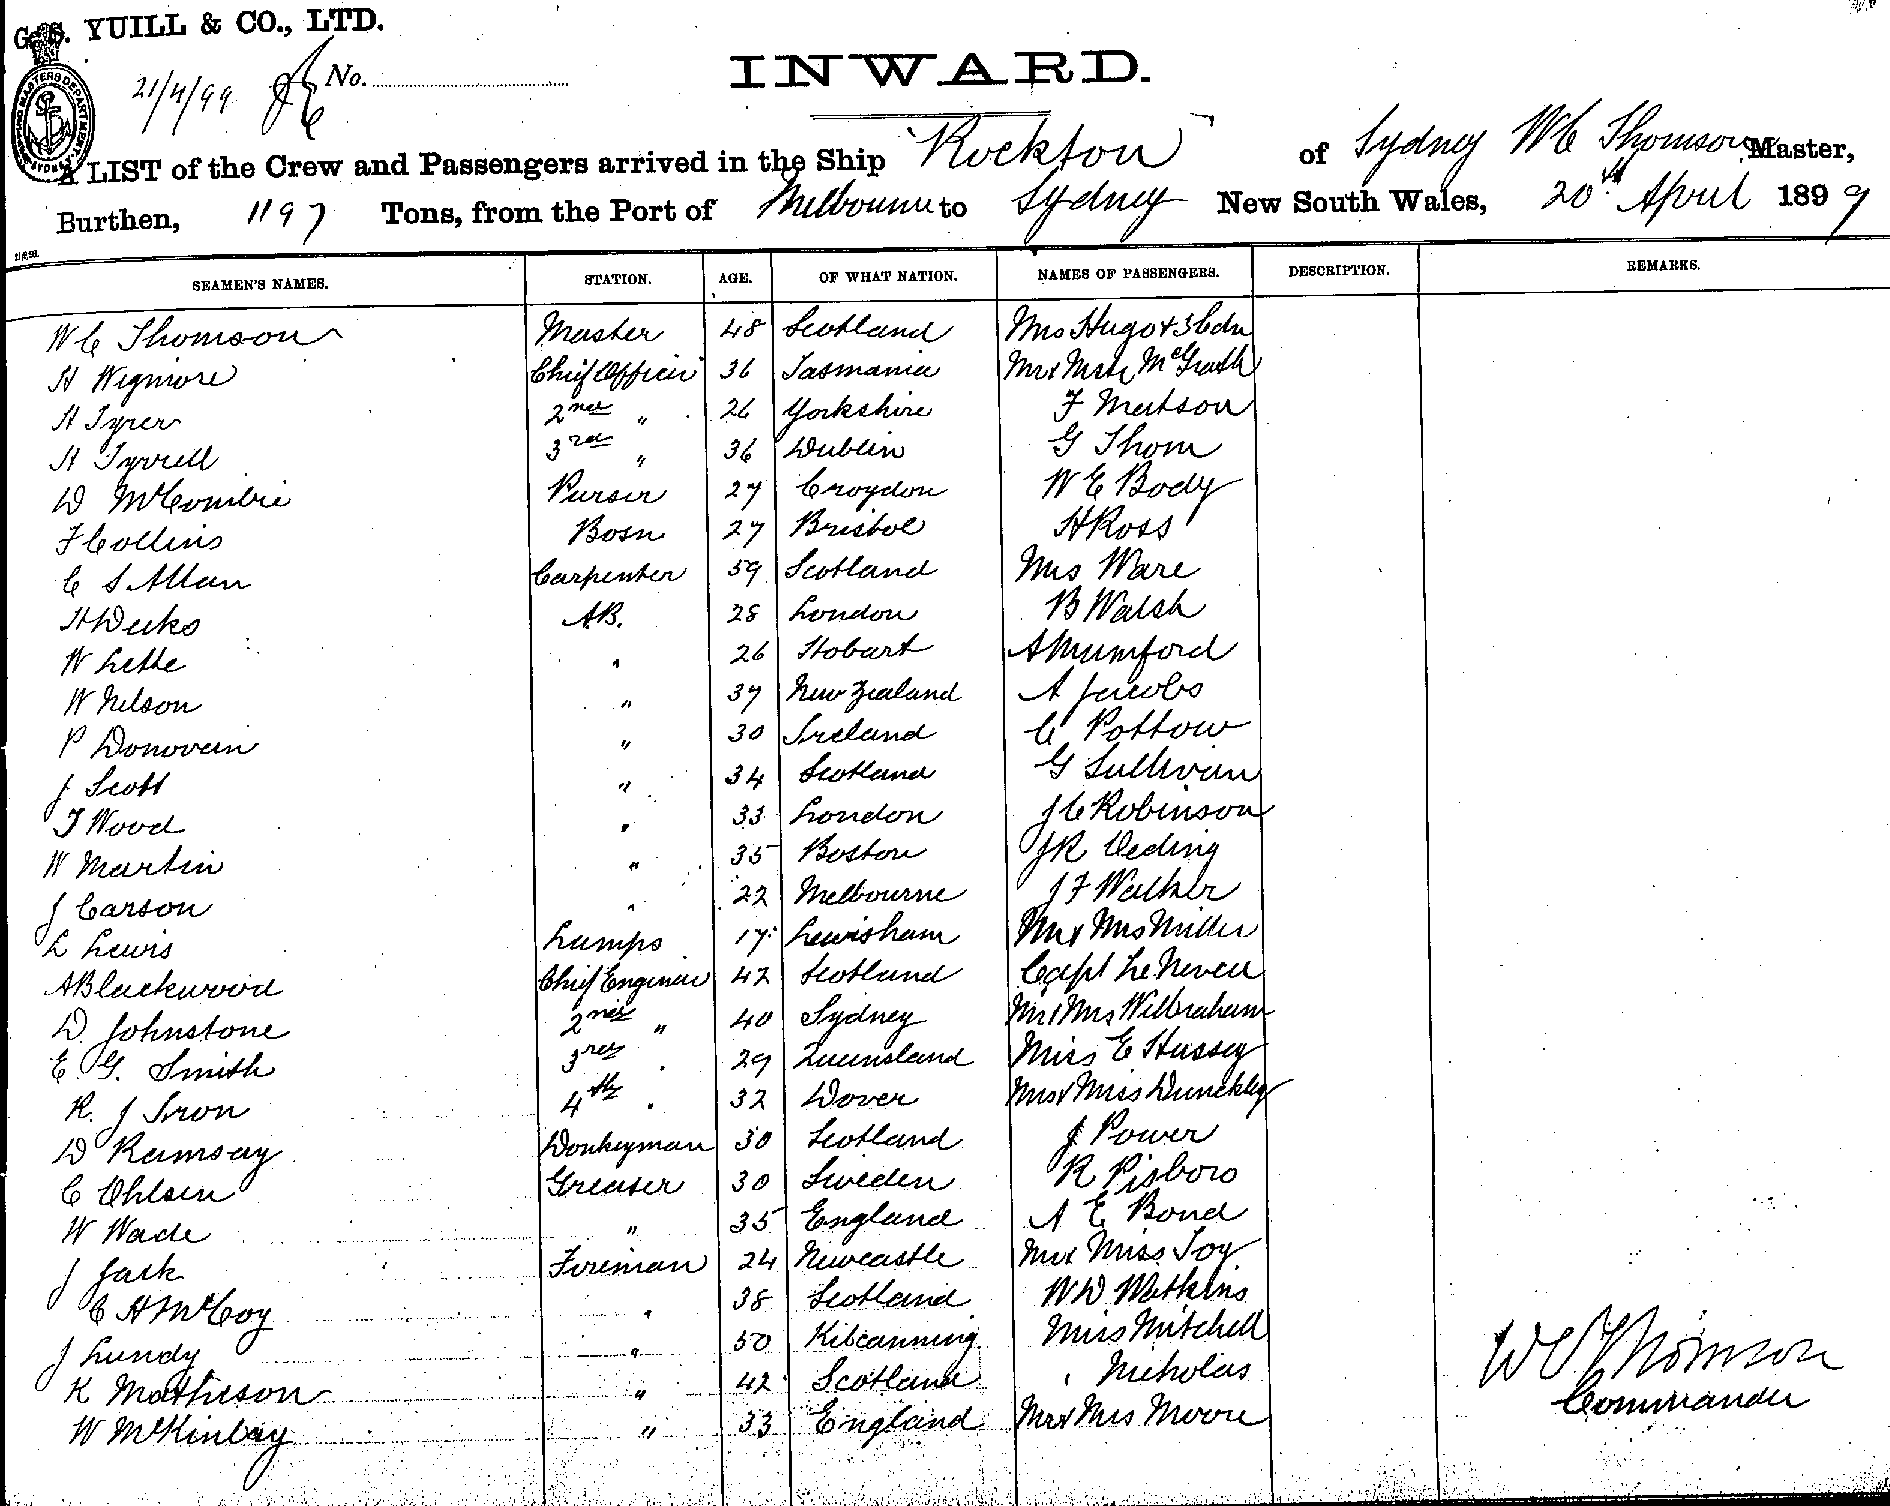 G. S. YUILL & CO., LTD.
21/4/99 No.
INWARD.
A LIST of the Crew and Passengers arrived in the Ship "Rockton" of Sydney W C Thomson Master,
Burthen, 1197 Tons, from the Port of Melbourne to Sydney New South Wales, 20th April 1899
SEAMEN'S NAMES. STATION. AGE. OF WHAT NATION. NAMES OF PASSENGERS. DESCRIPTION. REMARKS.
W C Thomson Master 48 Scotland Mrs Hugo & 3 Cdn
H Wigmore Chief Officer 36 Tasmania Mr & Mrs McGrath
H Tyrer 2nd " 26 Yorkshire F Matson
H Tyrrell 3rd " 36 Dublin G Thom
D McCombie Purser 27 Croydon W E Body
F Collins Bosn 27 Bristol H Ross
C S Allan Carpenter 59 Scotland Mrs Ware
H Deeks AB. 28 London B Walsh
W Lette " 26 Hobart A Mumford
W Nelson " 37 New Zealand A Jacobs
P Donovan " 30 Ireland C Pottow
J Scott " 34 Scotland G Sullivan
T Wood " 33 London J C Robinson
W Martin " 35 Boston J R
J Carson " 22 Melbourne J F Walker
L Lewis Lamps 17 Lewisham Mr & Mrs Miller
A Blackwood Chief Engineer 42 Scotland Capt Le Neveu
D. Johnstone 2nd " 40 Sydney Mr & Mrs Wilbraham
E. G. Smith 3rd " 29 Queensland Miss E Hussey
R. J Iron 4th " 32 Dover Mrs & Miss Dunckley
D Ramsay Donkeyman 30 Scotland J Power
C Ohlsen Greaser 30 Sweden R
W Wade " 35 England A E Bond
J Jack Fireman 24 Newcastle Mr & Miss Joy
C H McCoy " 38 Scotland W D Watkins
J Lundy " 50 Miss Mitchell
K Matheson " 42 Scotland " Nicholas
W McKinlay " 33 England Mr & Mrs Moore
W C Thomson
Commander